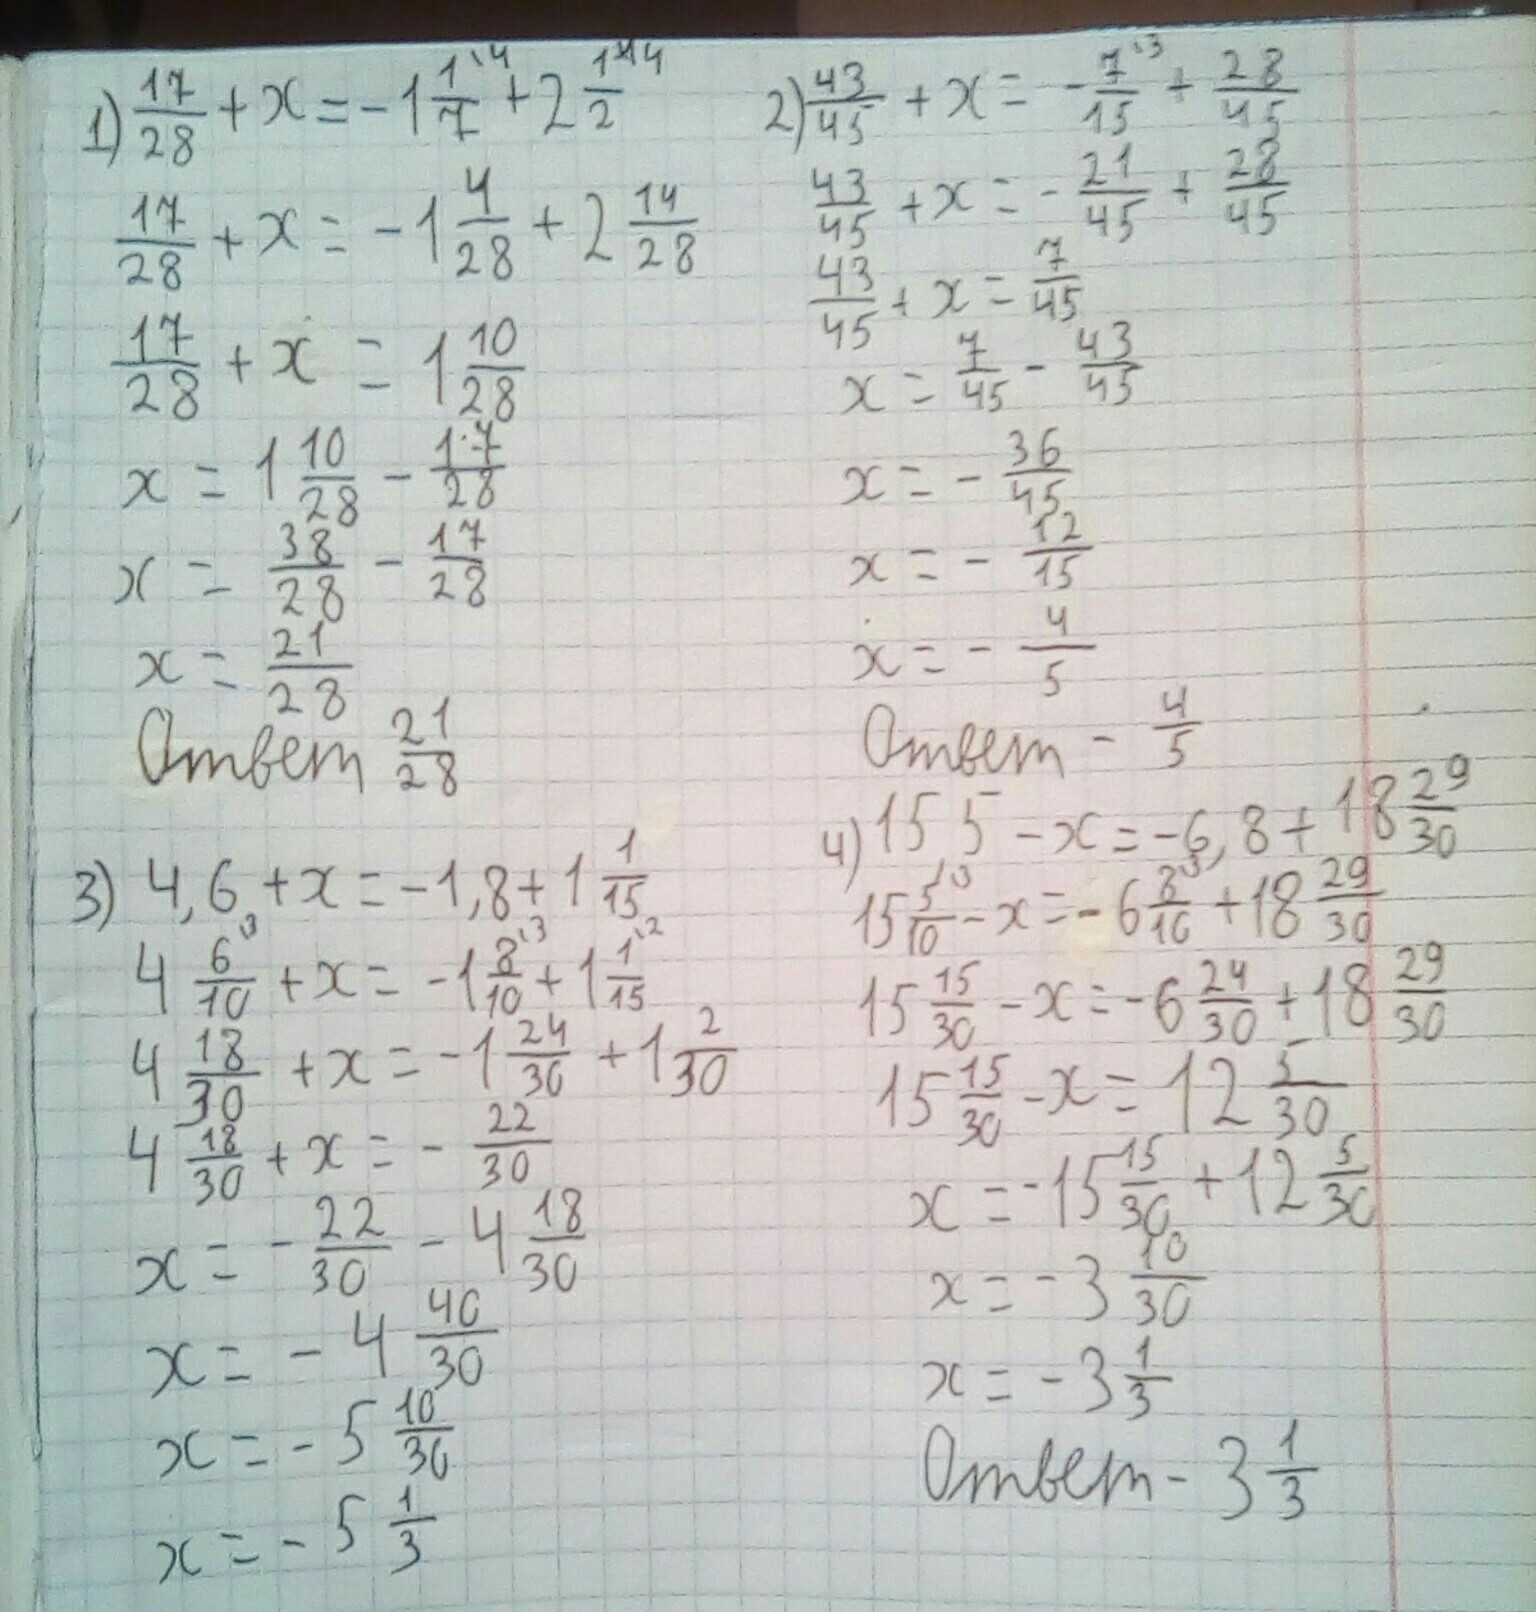 1) 17/28 + x = -1 1/7 \4 + 2 1/2 \14
17/28 + x = -1 4/28 + 2 14/28
17/28 + x = 1 10/28
x = 1 10/28 - 17/28
x = 38/28 - 17/28
x = 21/28
Ответ 21/28
2) 43/45 + x = -7/15 \3 + 28/45
43/45 + x = -21/45 + 28/45
43/45 + x = 7/45
x = 7/45 - 43/45
x = -36/45
x = -12/15
x = -4/5
Ответ -4/5
3) 4,6 + x = -1,8 + 1 1/15
4 6/10 \3 + x = -1 8/10 \3 + 1 1/15 \2
4 18/30 + x = -1 24/30 + 1 2/30
4 18/30 + x = -22/30
x = -22/30 - 4 18/30
x = -4 40/30
x = -5 10/30
x = -5 1/3
4) 15 5 - x = -6,8 + 18 29/30
15 5/10 \3 - x = -6 8/10 \3 + 18 29/30
15 15/30 - x = -6 24/30 + 18 29/30
15 15/30 - x = 12 5/30
x = -15 15/30 + 12 5/30
x = -3 10/30
x = -3 1/3
Ответ -3 1/3